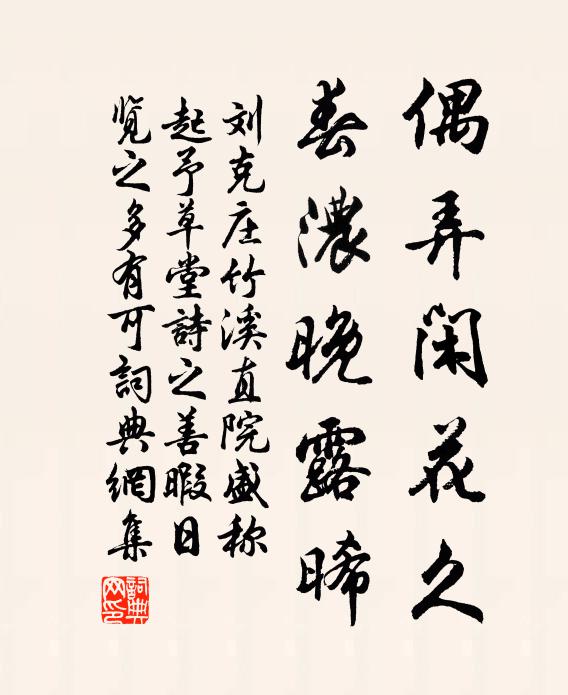 偶弄闲花久
春濃晚露晞
刘克庄竹溪直院盛称
起予草堂詩之善暇日
覧之多有可詞典網集
詞典
网印